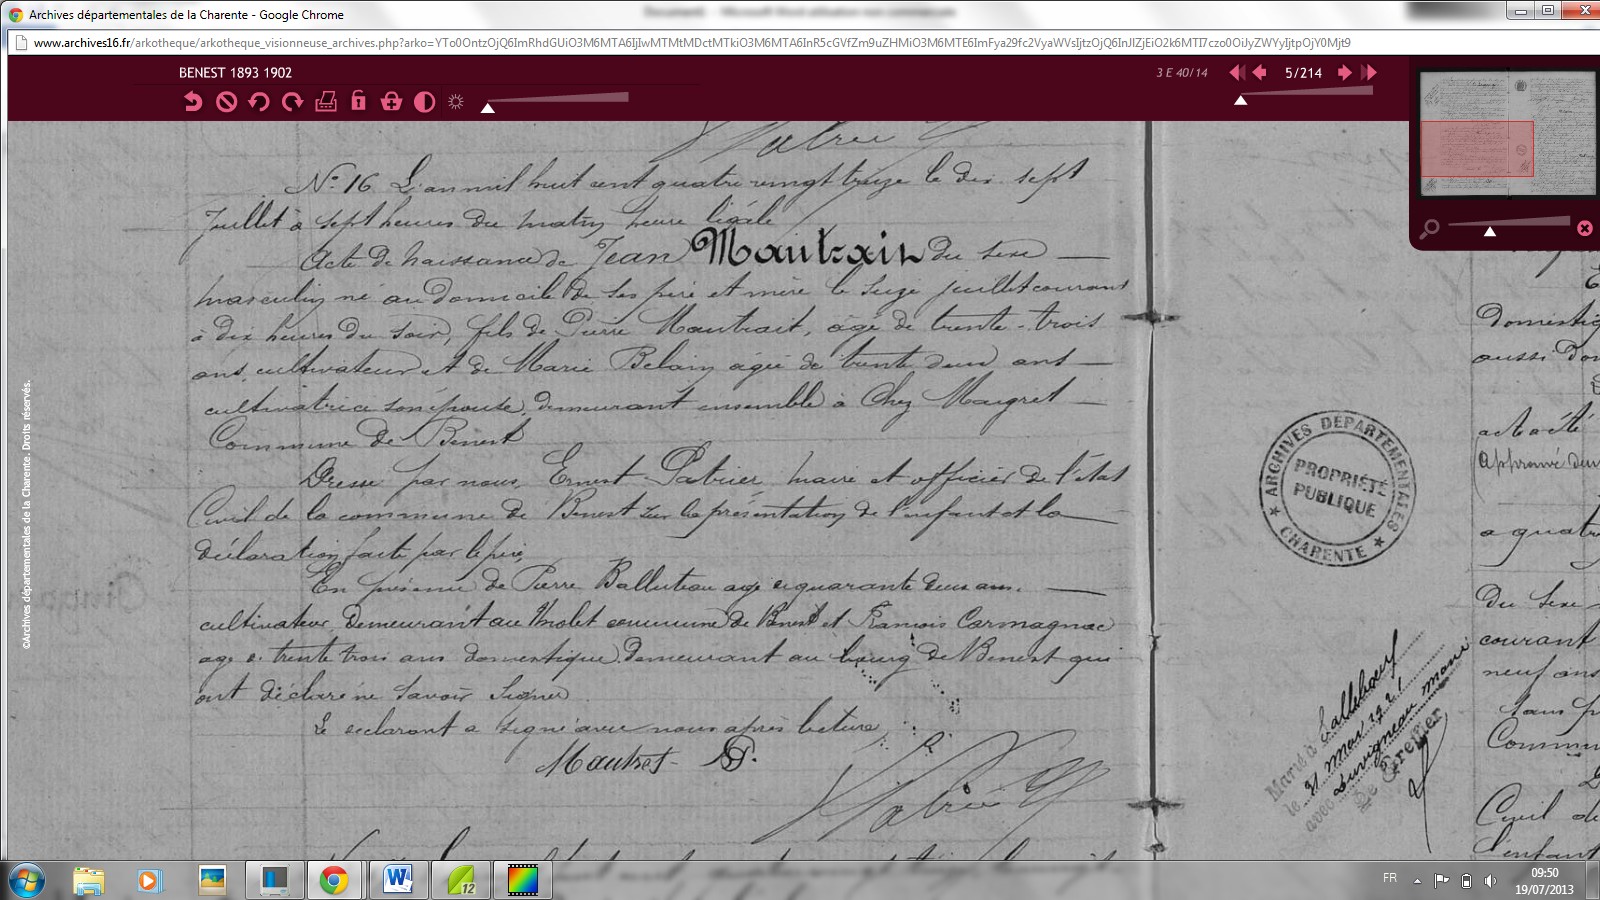 Archives départementales de la Charente - Google Chrome
www.archives16.fr/arkotheque/arkotheque_visionneuse_archives.php?arko=
BENEST 1893 1902
3 E 40/14
5/214
N° 16 L'an mil huit cent quatre vingt treize le dix sept
Juillet à sept heures du matin heure légale
Acte de naissance de Jean Mautrait du sexe
masculin né au domicile de ses père et mère le seize juillet courant
à dix heures du soir, fils de Pierre Mautrait, âgé de trente-trois
ans, cultivateur et de Marie Belain âgée de trente deux ans
cultivatrice son épouse, demeurant ensemble à Chez Maigret
Commune de Benest
Dressé par nous, Ernest Patrier, maire et officier de l'état
Civil de la commune de Benest sur la présentation de l'enfant et la
déclaration faite par le père,
En présence de Pierre Balluteau agé quarante deux ans.
cultivateur demeurant au commune de Benest et François Carmagnac
agé trente trois ans domestique, demeurant au bourg de Benest qui
ont déclaré ne savoir signer
Le déclarant a signé avec nous après lecture
Mautret P.
ARCHIVES DEPARTEMENTALES
PROPRIÉTÉ
PUBLIQUE
★ CHARENTE ★
Marié à
le
avec
aussi
Approuvé
Du sexe
courant
neuf ans
Civil de
l'enfant
©Archives départementales de la Charente. Droits réservés.
FR
09:50
19/07/2013